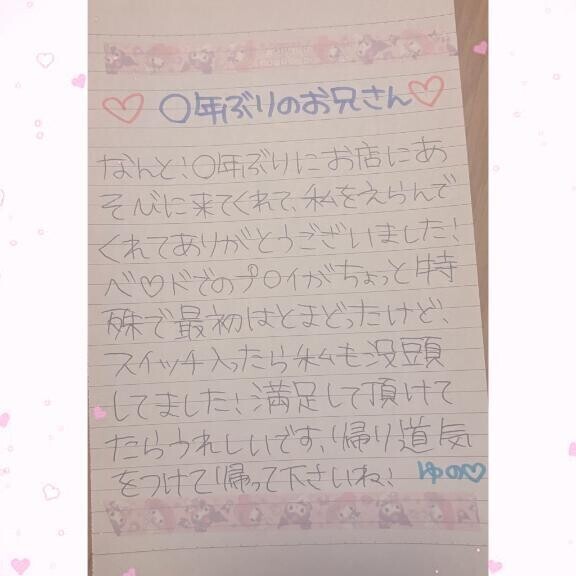 ♡ 〇年ぶりのお兄さん♡
なんと!〇年ぶりにお店にあ
そびに来てくれて、私をえらんで
くれてありがとうございました!
ベ♡ドでのプ〇イがちょっと特
殊で最初はとまどったけど、
スイッチ入ったら私も没頭
してました!満足して頂けて
たらうれしいです、!帰り道気
をつけて!帰って下さいね、
ゆの♡